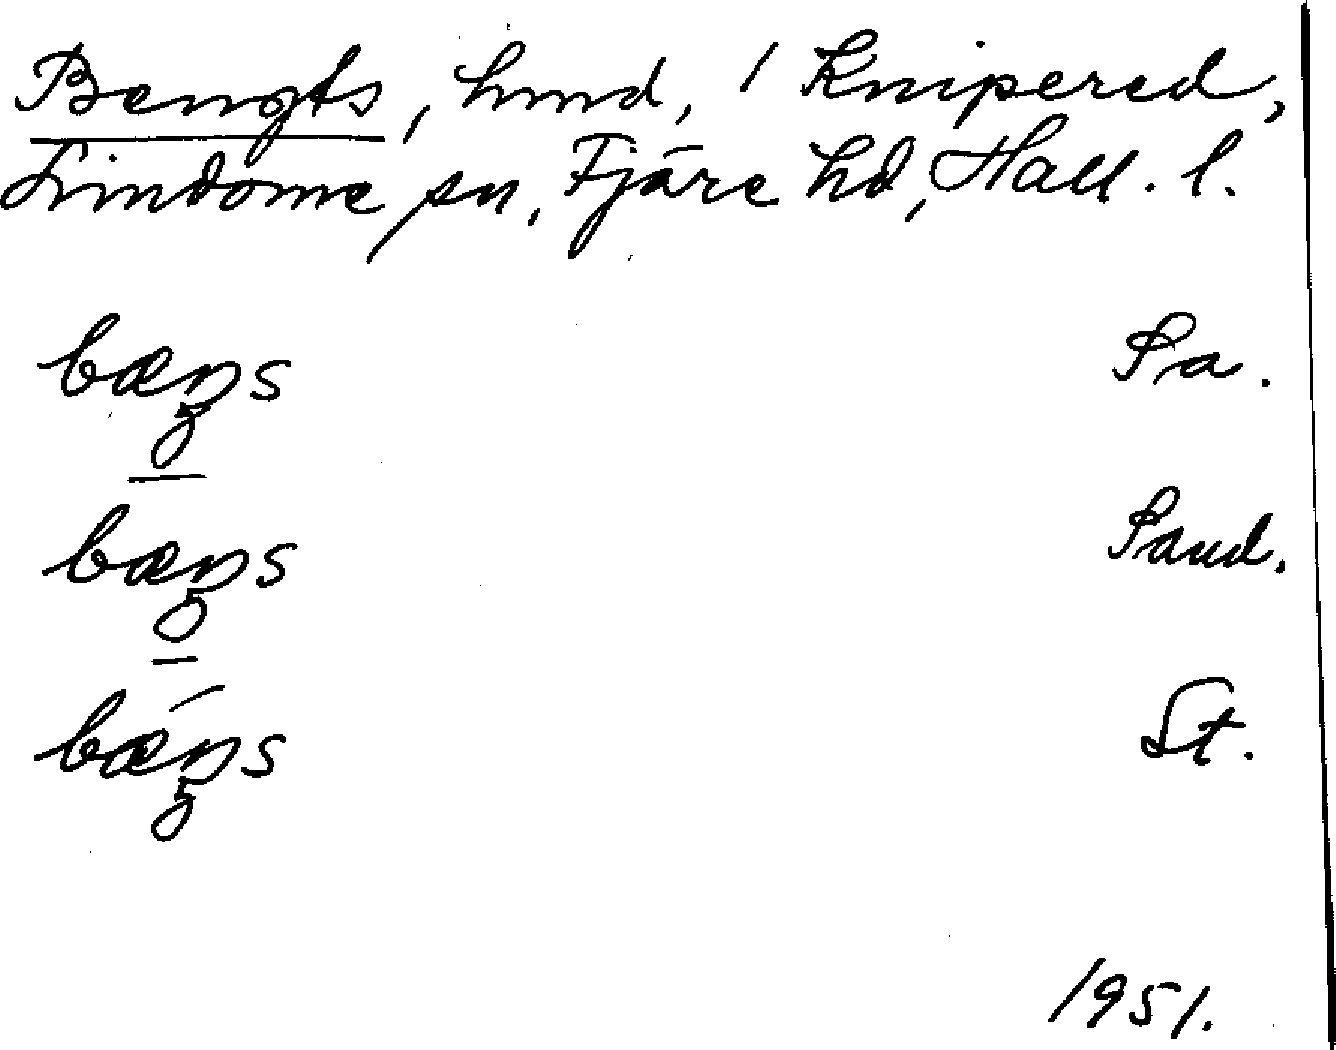 Bengts, hmd, / Knipered,
Lindome sn, Fjäre hd, Hall. l.
bæŋs Pa.
bæŋs Paud.
bǽŋs St.
1951.